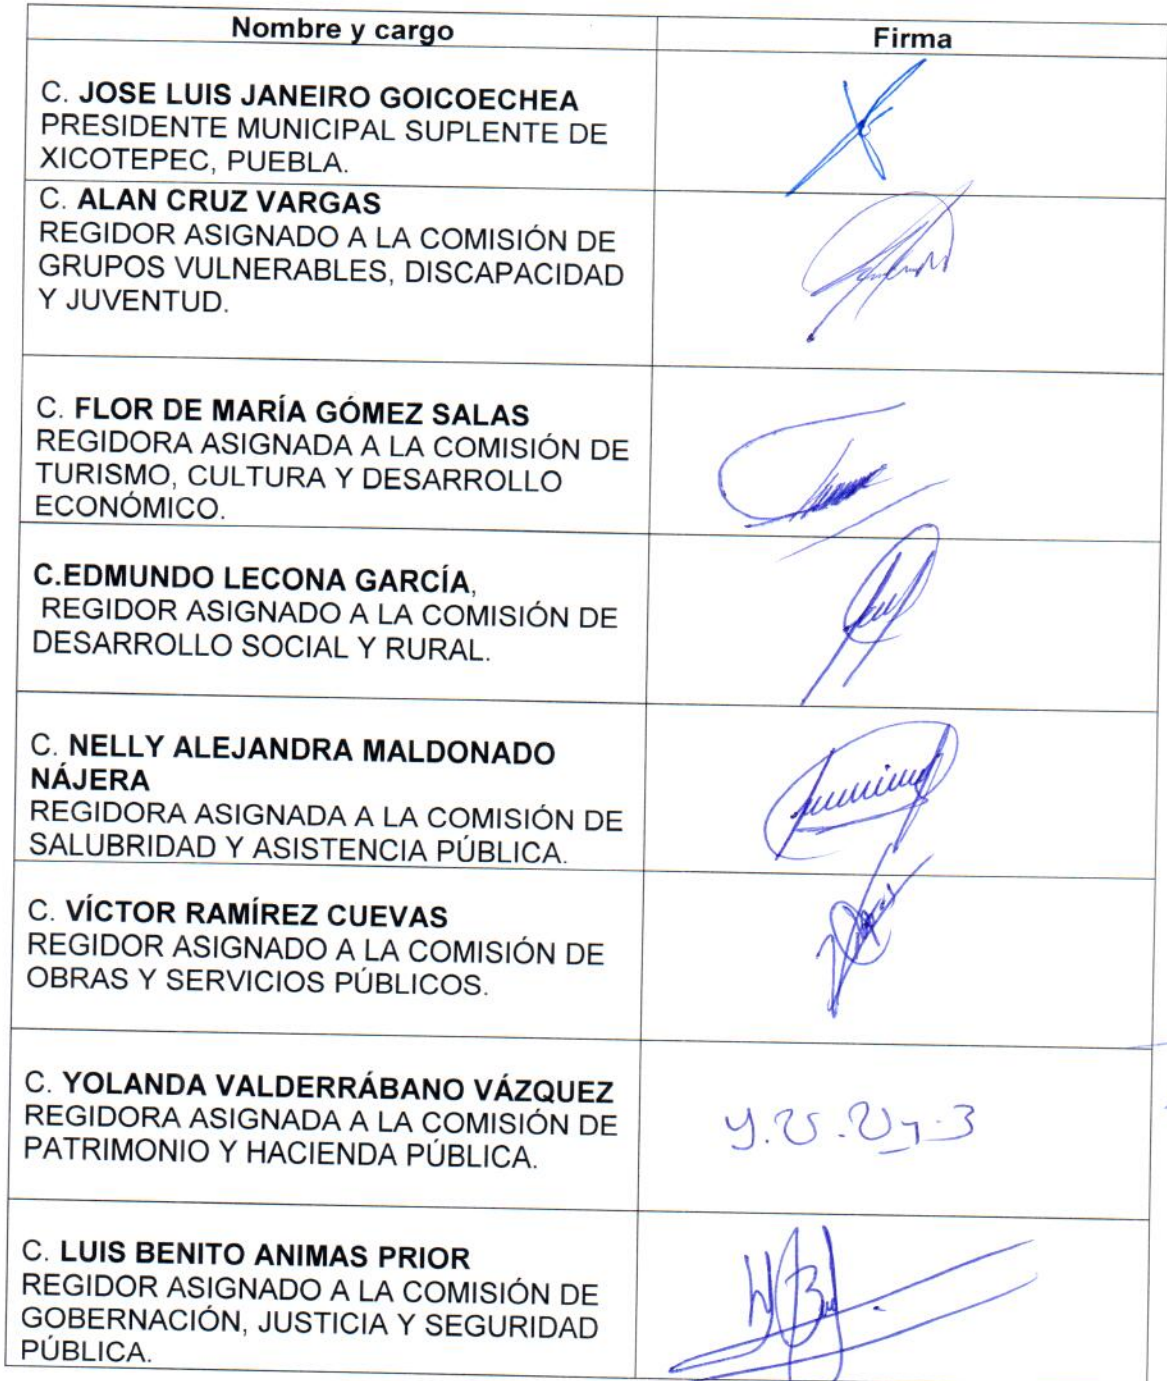 Nombre y cargo
Firma
C. JOSE LUIS JANEIRO GOICOECHEA
PRESIDENTE MUNICIPAL SUPLENTE DE
XICOTEPEC, PUEBLA.
C. ALAN CRUZ VARGAS
REGIDOR ASIGNADO A LA COMISIÓN DE
GRUPOS VULNERABLES, DISCAPACIDAD
Y JUVENTUD.
C. FLOR DE MARÍA GÓMEZ SALAS
REGIDORA ASIGNADA A LA COMISIÓN DE
TURISMO, CULTURA Y DESARROLLO
ECONÓMICO.
C.EDMUNDO LECONA GARCÍA,
REGIDOR ASIGNADO A LA COMISIÓN DE
DESARROLLO SOCIAL Y RURAL.
C. NELLY ALEJANDRA MALDONADO
NÁJERA
REGIDORA ASIGNADA A LA COMISIÓN DE
SALUBRIDAD Y ASISTENCIA PÚBLICA.
C. VÍCTOR RAMÍREZ CUEVAS
REGIDOR ASIGNADO A LA COMISIÓN DE
OBRAS Y SERVICIOS PÚBLICOS.
C. YOLANDA VALDERRÁBANO VÁZQUEZ
REGIDORA ASIGNADA A LA COMISIÓN DE
PATRIMONIO Y HACIENDA PÚBLICA.
C. LUIS BENITO ANIMAS PRIOR
REGIDOR ASIGNADO A LA COMISIÓN DE
GOBERNACIÓN, JUSTICIA Y SEGURIDAD
PÚBLICA.